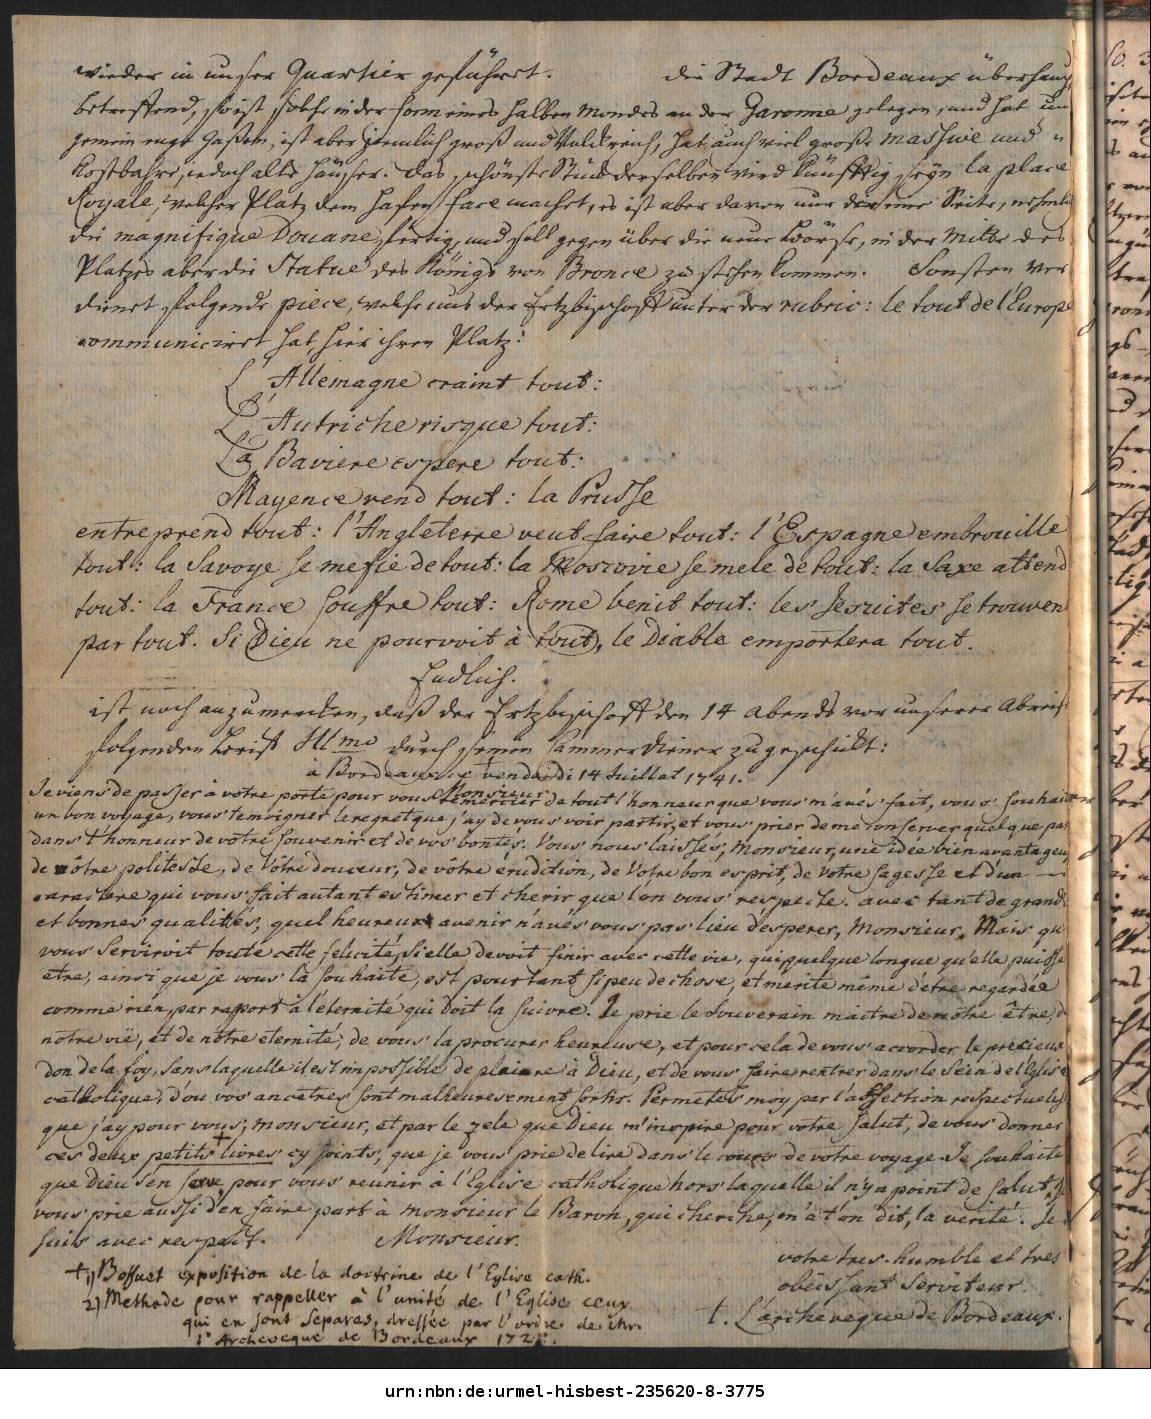 wieder in unser Quartier geführet. die Stadt Bordeaux überhaupt
betreffend, so ist solche in der form eines halben Mondes an der Garonne gelegen, und hat un
gemein enge Gaßen, ist aber ziemlich groß und Volckreich, hat auch viel große massive und
Kostbahre, iedoch alte Häußer. das schönste Stück derselben wird künfftig seyn la place
Royale, welcher Platz dem Hafen face machet, es ist aber davon nur die eine Seite, nehml
die magnifique Douane, fertig, und soll gegen über die neue Börse, in der Mitte des
Platzes aber die Statue des Königs von Bronce zu stehen kommen. Sonsten ver
dienet folgende piece, welche uns der Ertzbischoff unter der rubric: le tout de l'Europe
communiciret hat, hier ihren Platz:
L'Allemagne craint tout:
L'Autriche risque tout:
La Baviere espere tout:
Mayence vend tout: la Prusse
entreprend tout: l'Angleterre veut faire tout: l'Espagne embrouille
tout: la Savoye se mefie de tout: la Moscovie se mele de tout: la Saxe attend
tout: la France souffre tout: Rome benit tout: les Jesuites se trouven
par tout. Si Dieu ne pourvoit à tout, le Diable emportera tout.
Endlich.
ist noch anzumercken, daß der Ertzbischoff den 14 abends vor unserer Abreis
folgenden Brief Ill mo durch seinen Cammerdiener zugeschickt:
à Bordeaux ce vendredi 14 Juillet 1741.
Monsieur
Je viens de passer à votre porte pour vous remercier de tout l'honneur que vous m'avés fait, vous souhaiter
un bon voyage, vous temoigner le regret que j'ay de vous voir partir, et vous prier de me conserver quelque pa
dans l'honneur de vôtre souvenir et de vos bontés. Vous nous laisses, Monsieur, une idée bien avantageu
de vôtre politesse, de Vôtre douceur, de vôtre érudition, de Votre bon esprit, de votre sagesse et d'un
caractere qui vous fait autant estimer et cherir que l'on vous respecte. avec tant de grand
et bonnes qualités, quel heureux avenir n'avés vous pas lieu d'esperer, Monsieur. Mais qu
vous serviroit toute cette felicité, si elle devoit finir avec cette vie, qui quelque longue qu'elle puisse
etre, ainsi que je vous la souhaite, est pourtant si peu de chose, et merite même d'étre regardée
comme rien, par rapport à l'eternité qui doit la suivre. Je prie le Souverain maitre de notre être, d
notre vie, et de nôtre eternité, de vous la procurer heureuse, et pour cela de vous accorder le precieux
don de la foy, sans laquelle il est impossible de plaire à Dieu, et de vous faire rentrer dans le Sein de l'Eglise
catholique, d'ou vos ancetres sont malheuresement sortis. Permetés moy par l'affection respectueuse
que j'ay pour vous, monsieur, et par le zele que Dieu m'inspire pour votre salut, de vous donner
ces deux petits livres + cy joints, que je vous prie de lire dans le cours de votre voyage. Je souhaite
que Dieu s'en serve pour vous reunir à l'Eglise catholique hors laquelle il n'y a point de salut. Je
vous prie aussi d'en faire part à monsieur le Baron, qui cherche, m'a t'on dit, la verité. Je
suis avec respect. Monsieur.
votre tres-humble et tres
obéissant serviteur.
†. L'archeveque de Bordeaux.
+1) Bossuet exposition de la doctrine de l'Eglise cath.
2) Methode pour rappeller à l'unité de l'Eglise ceux
qui en sont separes, dressée par l'ordre de
l'Archeveque de Bordeaux
urn:nbn:de:urmel-hisbest-235620-8-3775